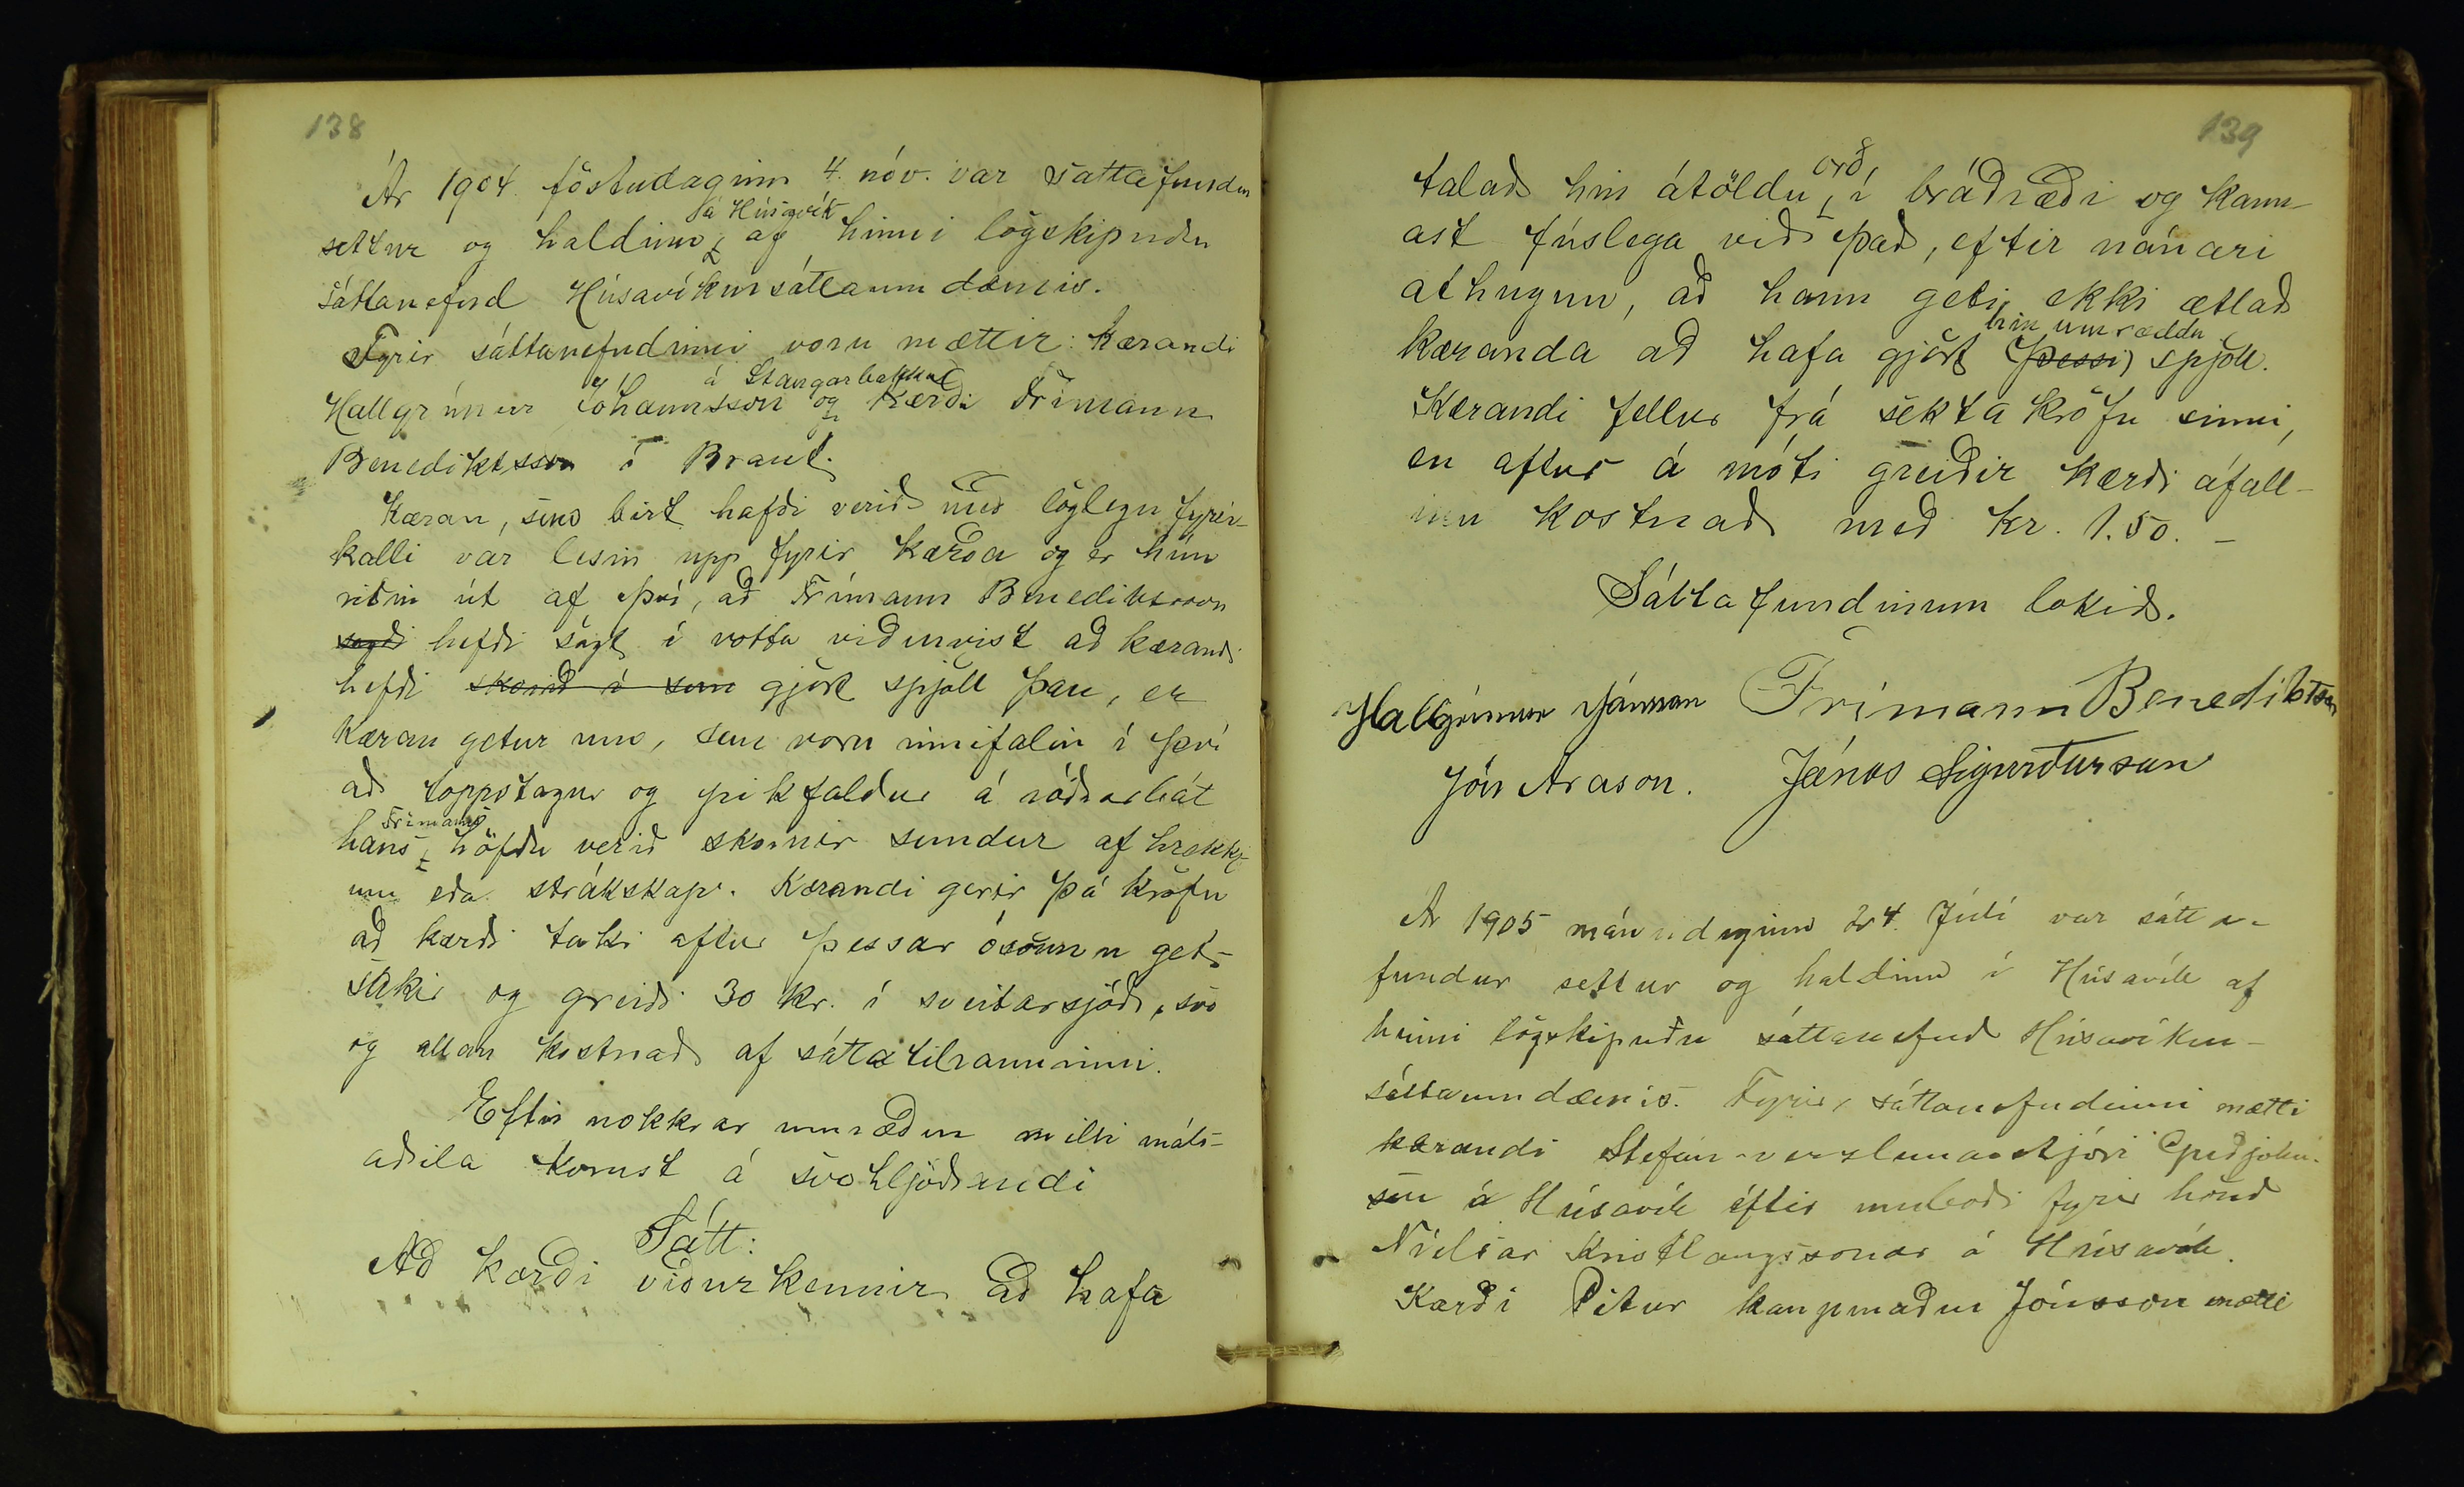 138
Ár 1904 föstudaginn 4. nóv. var sáttafundur
settur og haldinn á Húsavík af hinni lögskipuðu
sáttanefnd Húsavíkursáttaumdæmis.
Fyrir sáttanefndinni voru mættir: kærandi
Hallgrímur Jóhannsson á Stangarbakka og kærði Frímann
Benediktsson í Braut.
Kæran, sem birt hafði verið með löglegu fyrir-
kalli var lesin upp fyrir kærða og er hún
risin út af því, að Frímann Benediktsson
sagði hefði sagt í votta viðurvist að kærandi
hefði skorið í sun gjört spjöll þau, er
kæran getur um, sem voru innifalin í því
að toppstagur og pikfaldur á róðrarbát
hans Frímanns höfðu verið skornir sundur af hrekkj-
um eða strákskap. Kærandi gerir þá kröfu
að kærði taki aftur þessar ósönnu get-
sakir og greiði 30 kr. í sveitarsjóð, svo
og allan kostnað af sáttatilrauninni.
Eftir nokkrar umræður milli máls-
aðila komst á svohljóðandi
Sátt:
Að kærði viðurkennir að hafa
139
talað hin átöldu orð í bráðræði og kann-
ast fúslega við það, eftir nánari
athugun, að hann geti ekki ætlað
kæranda að hafa gjört (þessi) hin umræddu spjöll.
Kærandi fellur frá sektakröfu sinni,
en aftur á móti greiðir kærði áfall-
inn kostnað með kr. 1.50. –
Sáttafundinum lokið.
Hallgrímur Frímann Benediktsson
Jón Arason. Jánas Sigurðursun
Ár 1905 mánudaginn 24. Júlí var sátta-
fundur settur og haldinn í Húsavík af
hinni lögskipuðu sáttanefnd Húsavíkur-
sáttaumdæmis. Fyrir sáttanefndinni mætti
kærandi Stefán verzlunarstjóri Guðjohn-
sen á Húsavík eftir umboði fyrir hönd
Níelsar Kristlaugssonar á Húsavík.
Kærði Pétur kaupmaður Jónsson mætti